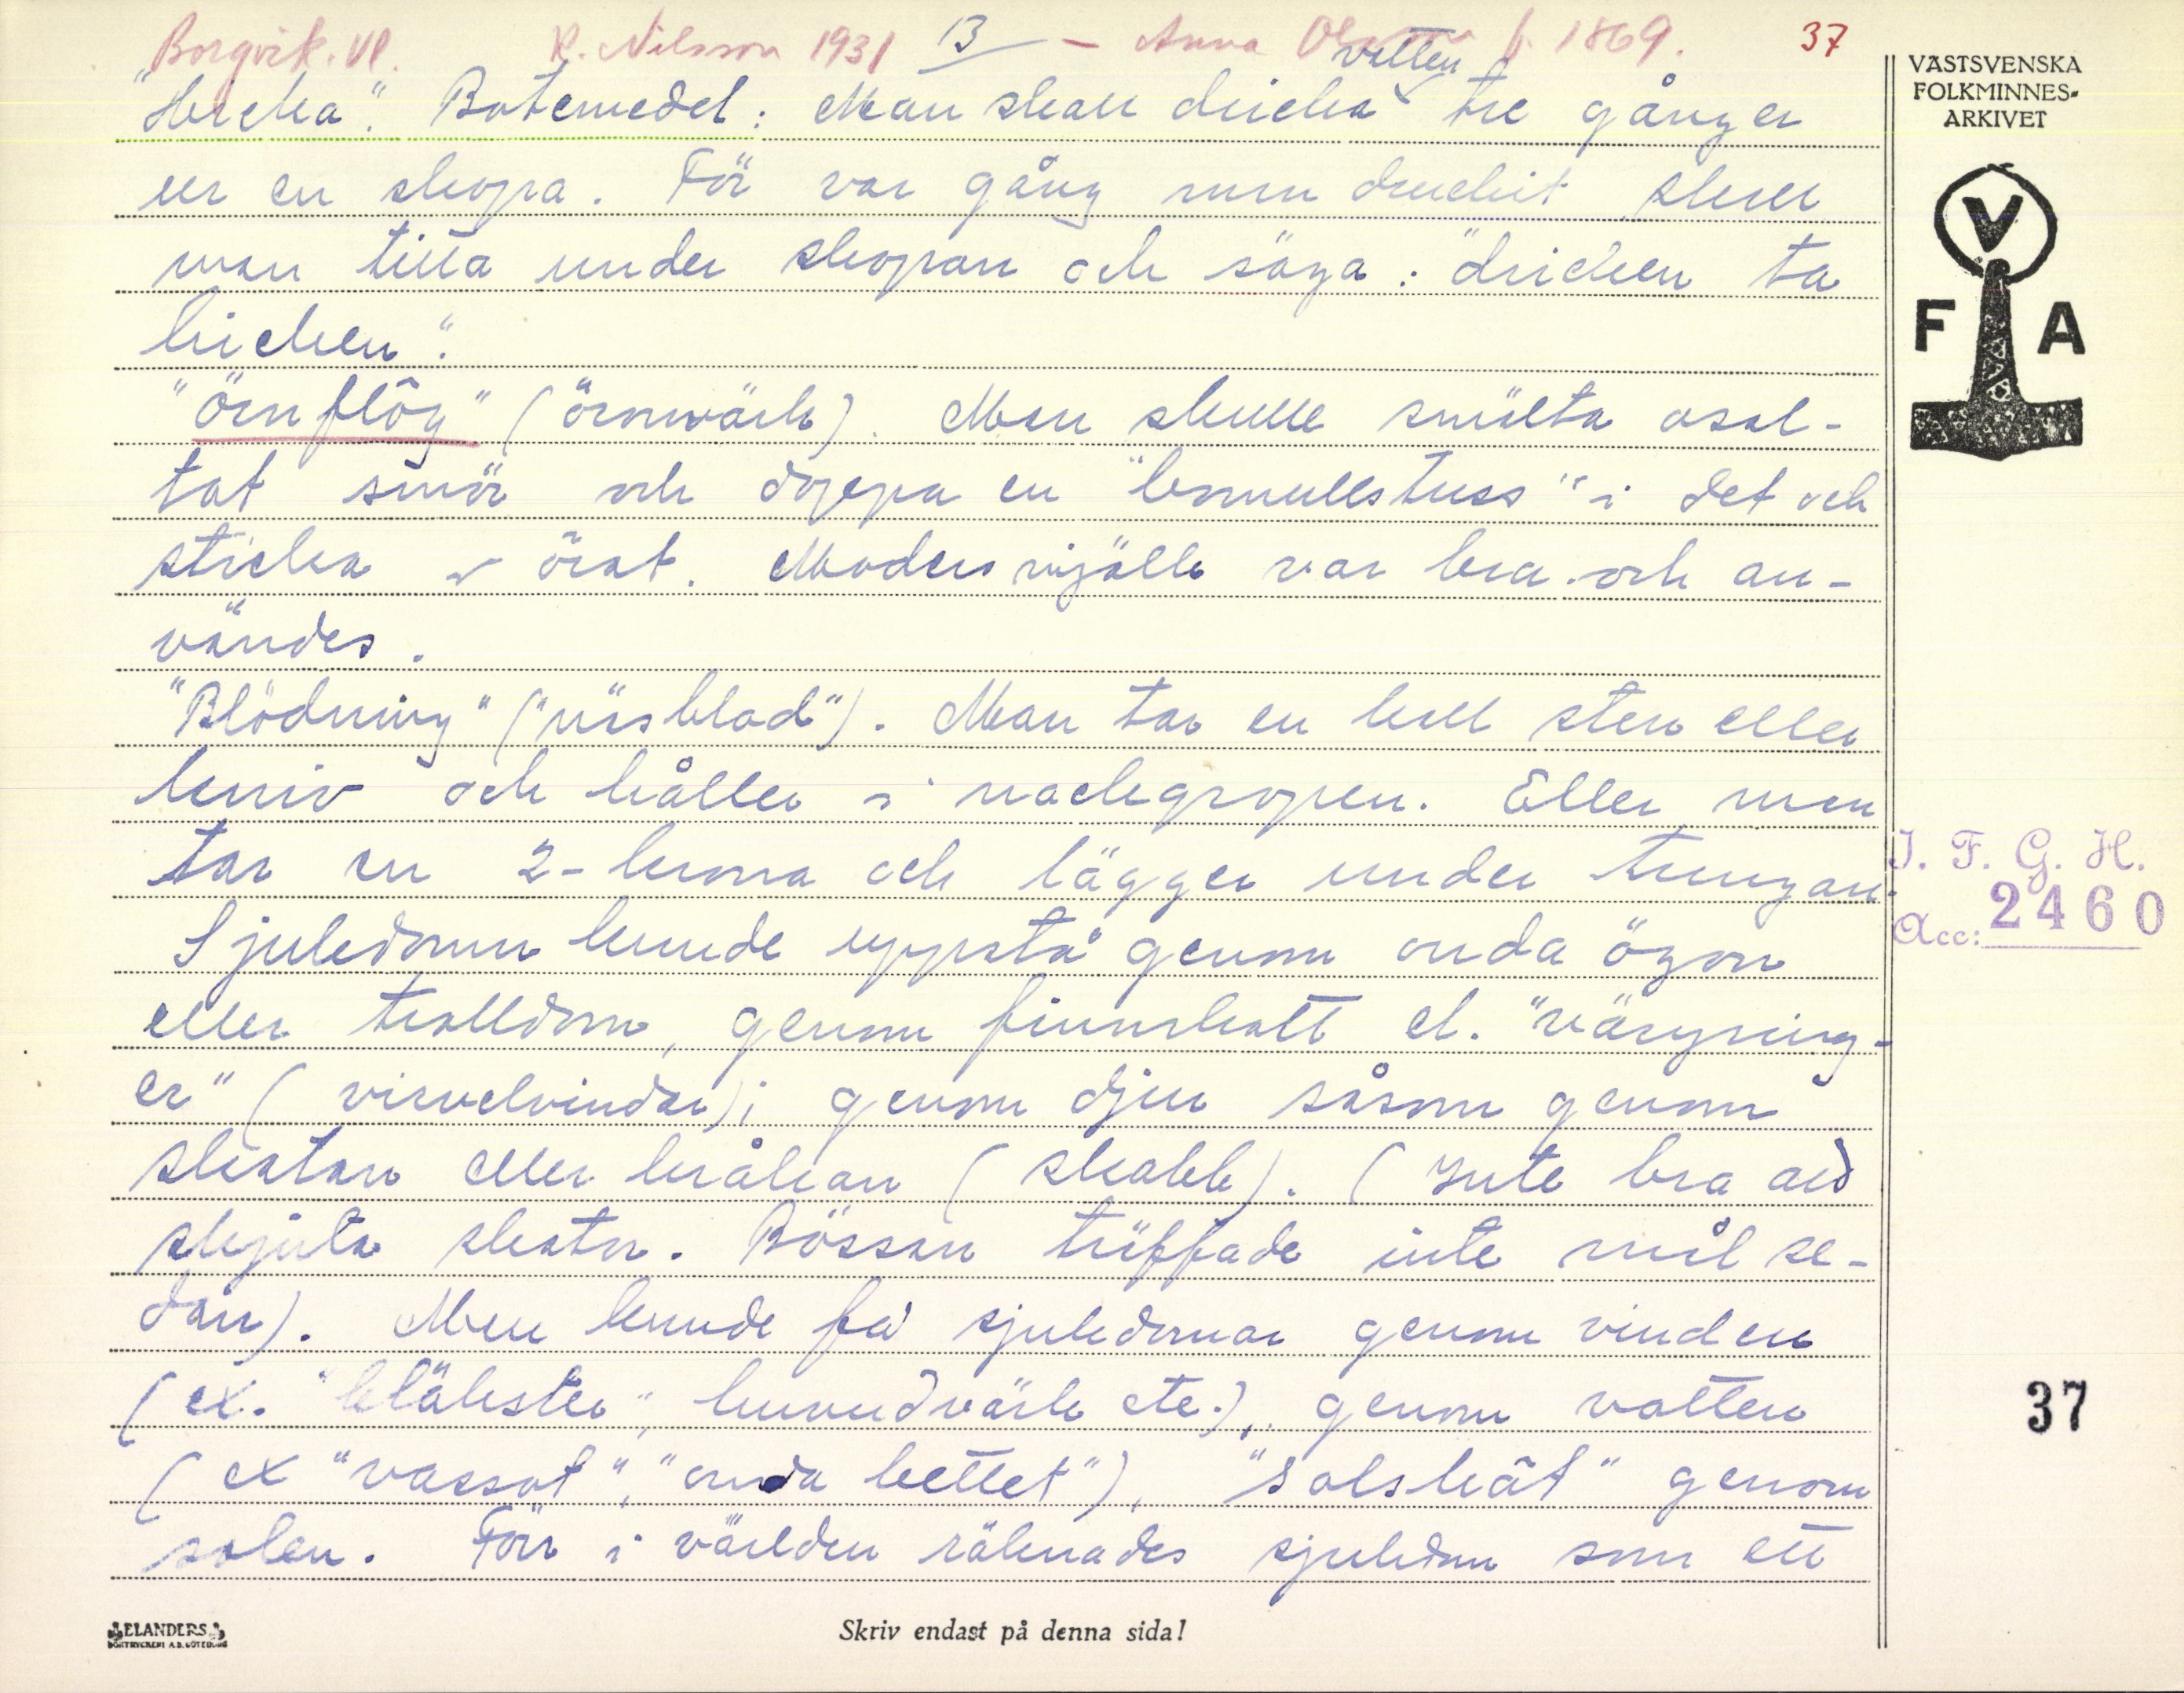 Borgvik. Vl. K. Nilsson 1931 13 — Anna Olsson f. 1869. 37
"Hicka". Botemedel: Man skall dricka vatten tre gånger
ur en skopa. För var gång man druckit skall
man titta under skopan och säga: "dricken ta
hicken".
"örnflôg" (öronvärk). Man skulle smälta osal-
tat smör och doppa en "bomullstuss" i det och
sticka i örat. Modersmjölk var bra och an-
vändes.
"Blödning" ("näsblod"). Man tar en kall sten eller
kniv och håller i nackgropen. Eller man
tar en 2-krona och lägger under tungan.
Sjukdomar kunde uppstå genom onda ögon
eller trolldom, genom finnskott el. "värgning-
er" (virvelvindar); genom djur såsom genom
skatan eller kråkan (skabb). (Inte bra att
skjuta skator. Bössan träffade inte mål se-
dan). Man kunde få sjukdomar genom vinden
(ex. "bläkster", huvudvärk etc.), genom vatten
(ex "vassot", "onda bettet"), "solskôt" genom
solen. Förr i världen räknades sjukdom som ett
VÄSTSVENSKA
FOLKMINNES-
ARKIVET
V
F A
I. F. G. H.
Acc: 2460
37
ELANDERS
BOKTRYCKERI A.B. GÖTEBORG
Skriv endast på denna sida!